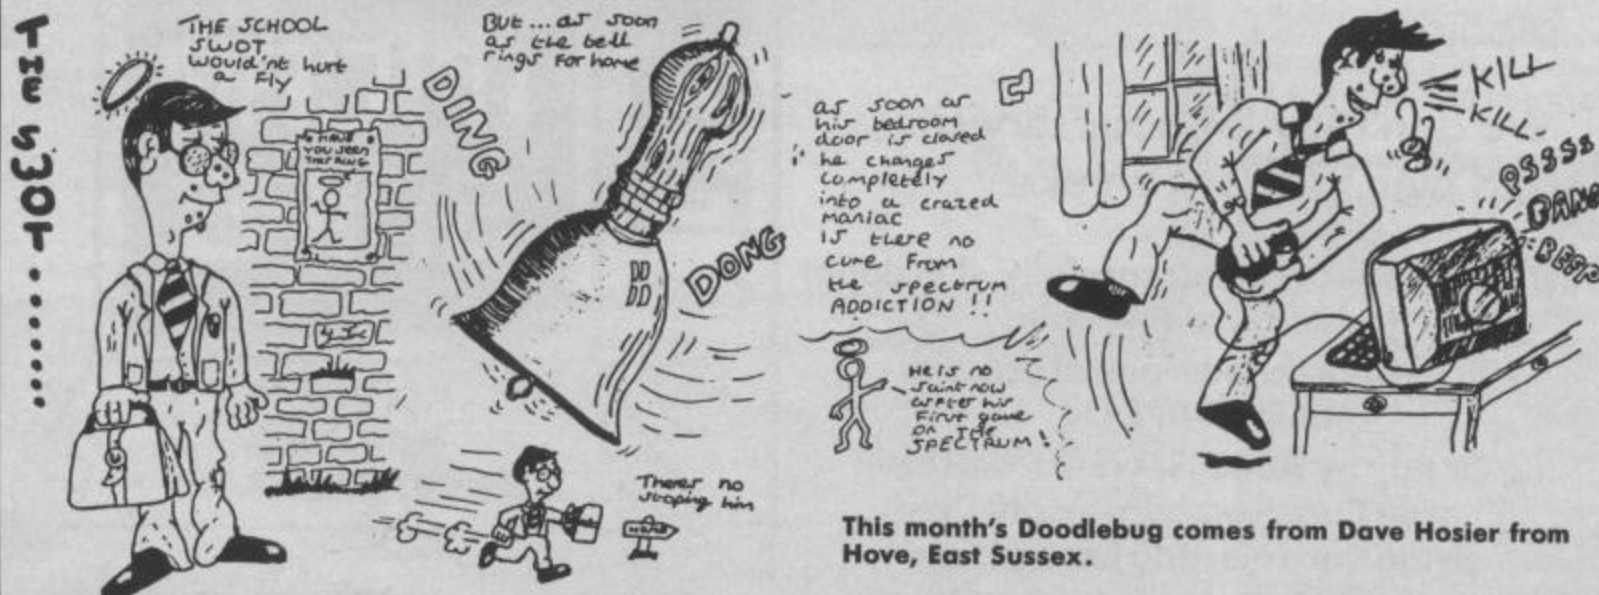 THE SWOT.........
THE SCHOOL
SWOT
would'nt hurt
a fly
HAVE
YOU SEEN
THIS RING
BUt...as soon
as the bell
rings For home
DING
DONG
Theres no
stoping him
as soon as
his bedroom
door is closed
he changes
completely
into a crazed
maniac
IS there no
cure From
the spectrum
ADDICTION !!
He is no
saint now
after his
First game
on THE
SPECTRUM!
KILL
KILL
PSSSS
BANG
BEEP
This month's Doodlebug comes from Dave Hosier from
Hove, East Sussex.